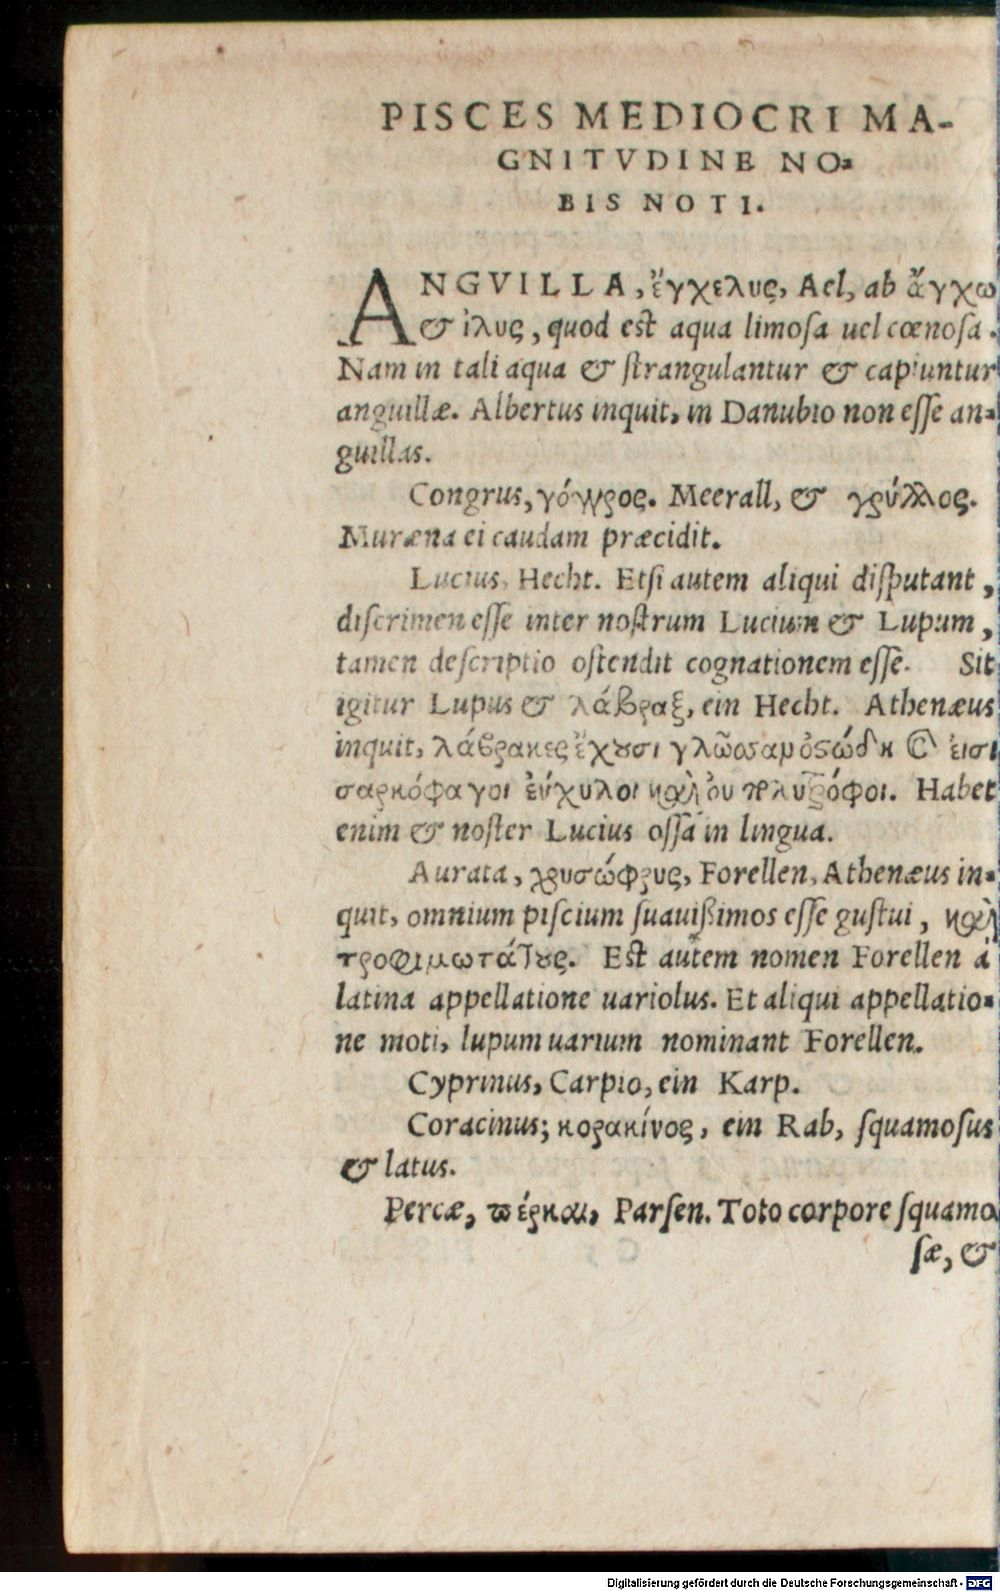 PISCES MEDIOCRI MA-
GNITVDINE NO-
BIS NOTI.
ANGVILLA, ἔγχελυς, Ael, ab ἄγχω
& ἰλυς, quod est aqua limosa uel cœnosa.
Nam in tali aqua & strangulantur & capiuntur
anguillæ. Albertus inquit, in Danubio non esse an-
guillas.
Congrus, γόγγρος. Meerall, & γρύλλος.
Muræna ei caudam præcidit.
Lucius, Hecht. Etsi autem aliqui disputant,
discrimen esse inter nostrum Lucium & Lupum,
tamen descriptio ostendit cognationem esse. Sit
igitur Lupus & λάβραξ, ein Hecht. Athenæus
inquit, λάβρακες ἔχουσι γλῶσσαμ ὀστώδη καὶ ἐισι
σαρκόφαγοι ἐύχυλοι καὶ ὀυ πολυτρόφοι. Habet
enim & noster Lucius ossa in lingua.
Aurata, χρυσώφρυς, Forellen, Athenæus in-
quit, omnium piscium suauißimos esse gustui, καὶ
τροφιμωτάτους. Est autem nomen Forellen à
latina appellatione uariolus. Et aliqui appellatio-
ne moti, lupum uarium nominant Forellen.
Cyprinus, Carpio, ein Karp.
Coracinus; κορακίνος, ein Rab, squamosus
& latus.
Percæ, πέρκαι, Parsen. Toto corpore squamo
sæ, &
Digitalisierung gefördert durch die Deutsche Forschungsgemeinschaft - DFG